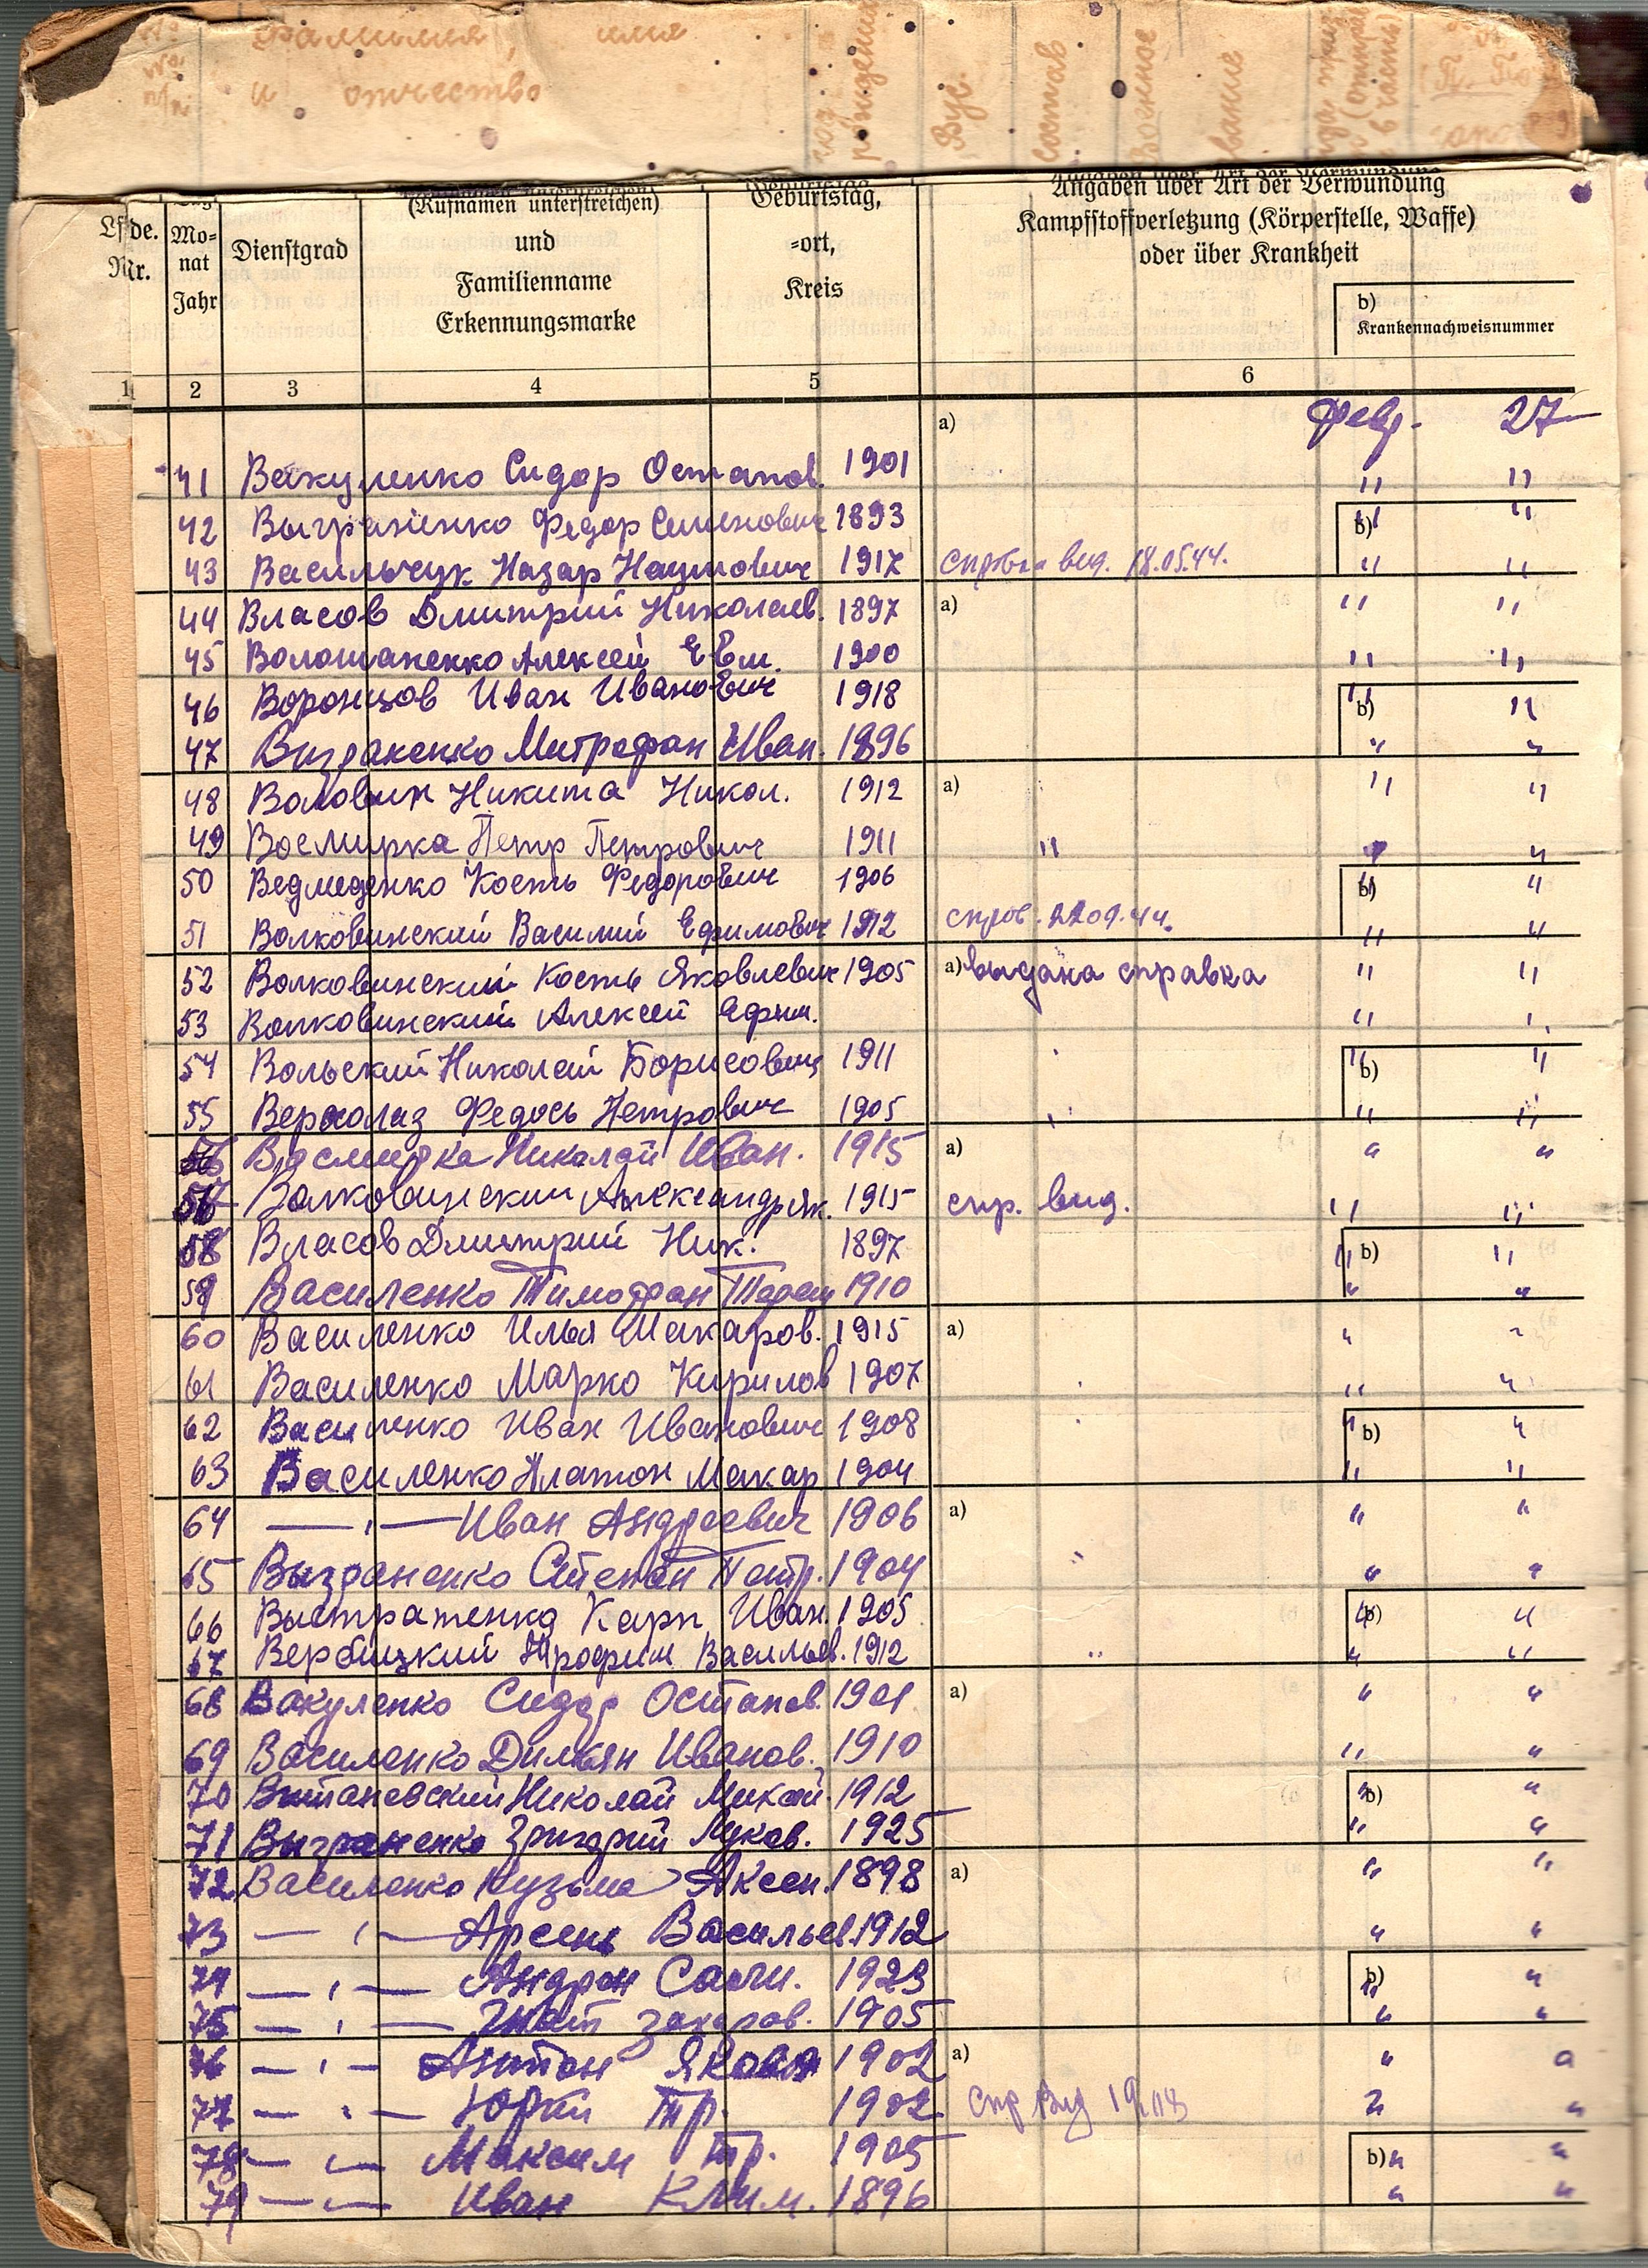 фамилия, имя
и отчество
год рождения
Вус.
состав
Военное
звание
Lfde. Nr.
Mo-
nat
Jahr
Dienstgrad
(Rufnamen unterstreichen)
und
Familienname
Erkennungsmarke
Geburtstag,
-ort,
Kreis
Angaben über Art der Verwundung
Kampfstoffverletzung (Körperstelle, Waffe)
oder über Krankheit
b)
Krankennachweisnummer
1 2 3 4 5 6
a) февр. 27
41 Вакуленко Сидор Остапов. 1901 " "
42 Выграненко Федор Семенович 1893 b) " "
43 Васильчук Назар Наумович 1917 вид. 18.05.44. " "
44 Власов Дмитрий Николаев. 1897 a) " "
45 Волошаненко Алексей Евм. 1900 " "
46 Воронцов Иван Иванович 1918 b) " "
47 Выграненко Митрофан Иван. 1896 " "
48 Воловик Никита Никол. 1912 a) " "
49 Восмирка Петр Петрович 1911 " " "
50 Ведмеденко Кость Федорович 1906 b) " "
51 Волковинский Василий Ефимович 1912 справ. 22.09.44. " "
52 Волковинский Кость Яковлевич 1905 a) выдана справка " "
53 Волковинский Алексей Ефим. " "
54 Вольский Николай Борисович 1911 b) " "
55 Верхолаз Федось Петрович 1905 " "
56 Восмирка Николай Иван. 1915 a) " "
57 Волковинский Александр Як. 1915 спр. вид. " "
58 Власов Дмитрий Ник. 1897 b) " "
59 Василенко Тимофан 1910 " "
60 Василенко Илья Макаров. 1915 a) " "
61 Василенко Марко Кирилов 1907 " "
62 Василенко Иван Иванович 1908 b) " "
63 Василенко Платон Макар 1904 " "
64 — " — Иван Андреевич 1906 a) " "
65 Выграненко Степан Петр. 1904 " "
66 Карп Иван. 1905 b) " "
67 Вербицкий Трофим Васильев. 1912 " "
68 Вакуленко Сидор Остапов. 1901 a) " "
69 Василенко Дилиян Иванов. 1910 " "
70 Витановский Николай Михай. 1912 b) " "
71 Выграненко Григорий Луков. 1925 " "
72 Василенко Кузьма Аксен. 1898 a) " "
73 — " — Арсень Васильев. 1912 " "
74 — " — Андрон Сали. 1923 b) " "
75 — " — Гнат Захаров. 1905 " "
76 — " — Антон Яковл 1902 a) " "
77 — " — Юрки Тр. 1902 спр вид " "
78 — " — Максим Тр. 1905 b) " "
79 — " — Иван Клим. 1896 " "